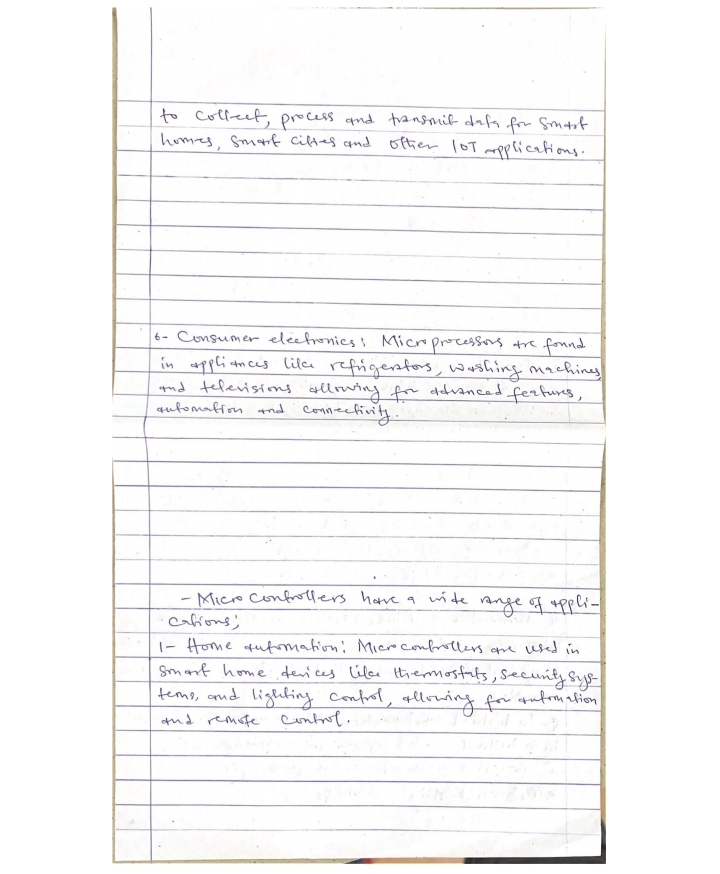 to collect, process and transmit data for Smart
homes, Smart cities and other IOT applications.
6- Consumer electronics: Microprocessors are found
in appliances like refrigerators, washing machines,
and televisions allowing for advanced features,
automation and connectivity.
- Micro controllers have a wide range of appli-
cations;
1- Home automation: Microcontrollers are used in
Smart home devices like thermostats, security sys-
tems, and lighting control, allowing for automation
and remote control.